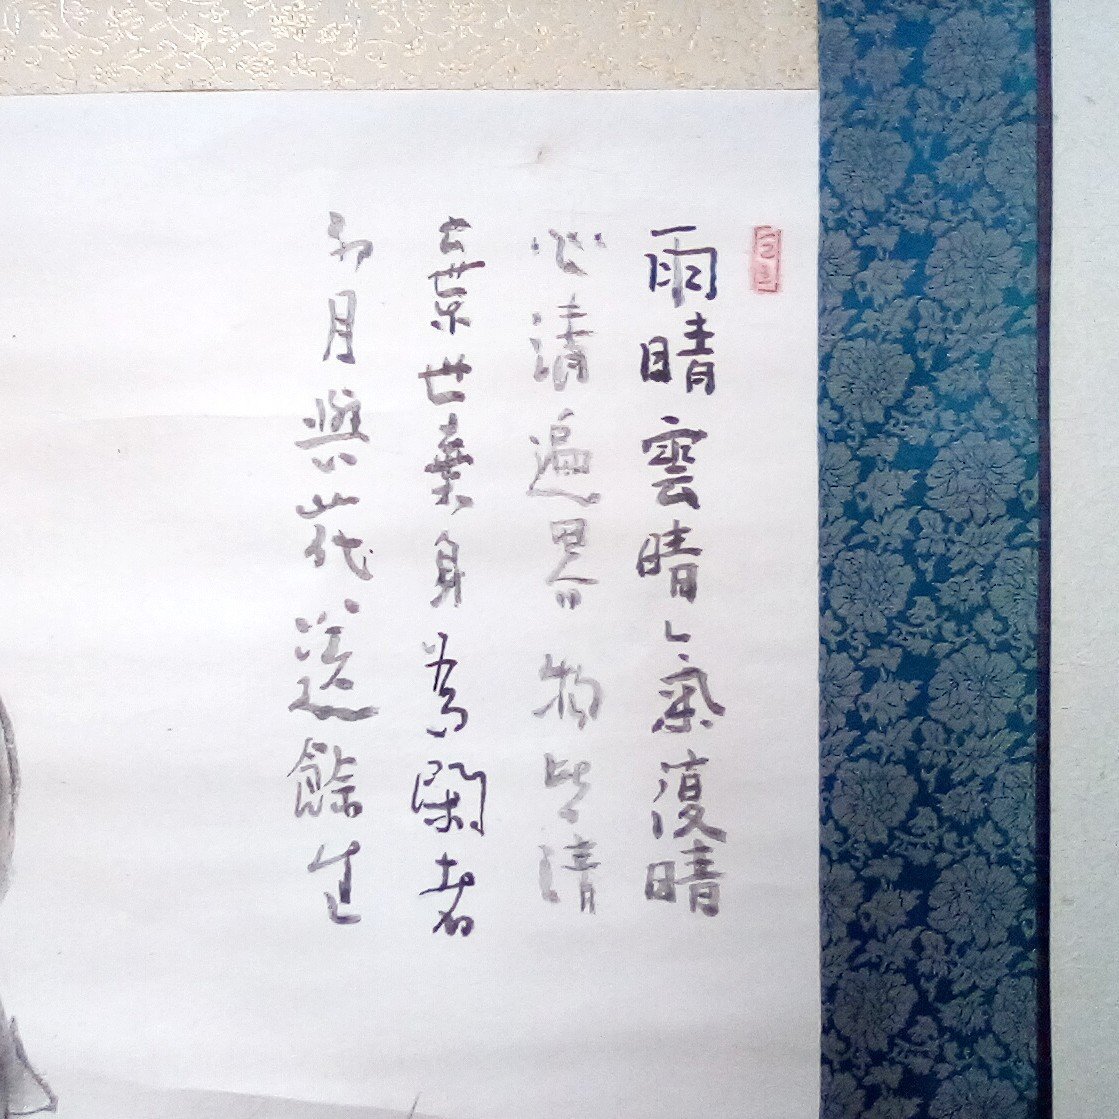 雨晴雲晴氣復晴
心清遍界物皆清
棄世棄身為閑者
初月與花送餘生